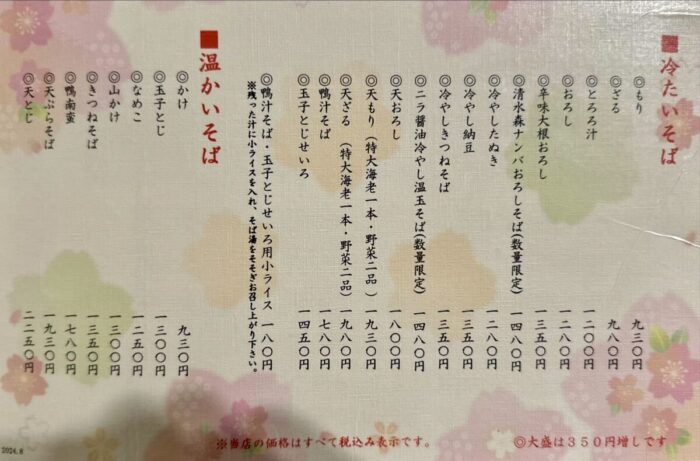 ■冷たいそば
◎もり 九三〇円
◎ざる 九八〇円
◎とろろ汁 一二〇〇円
◎おろし 一二八〇円
◎辛味大根おろし 一三五〇円
◎清水森ナンバおろしそば(数量限定) 一四八〇円
◎冷やしたぬき 一二八〇円
◎冷やし納豆 一三五〇円
◎冷やしきつねそば 一三五〇円
◎ニラ醤油冷やし温玉そば(数量限定) 一四八〇円
◎天おろし 一八〇〇円
◎天もり(特大海老一本・野菜二品) 一九三〇円
◎天ざる(特大海老一本・野菜二品) 一九八〇円
◎鴨汁そば 一七八〇円
◎玉子とじせいろ 一四五〇円
◎鴨汁そば・玉子とじせいろ用小ライス 一八〇円
※残った汁に小ライスを入れ、そば湯をそそぎお召し上がり下さい。
■温かいそば
◎かけ 九三〇円
◎玉子とじ 一三〇〇円
◎なめこ 一二五〇円
◎山かけ 一三〇〇円
◎きつねそば 一三五〇円
◎鴨南蛮 一七八〇円
◎天ぷらそば 一九三〇円
◎天とじ 二二五〇円
◎大盛は350円増しです
※当店の価格はすべて税込み表示です。
2024.8